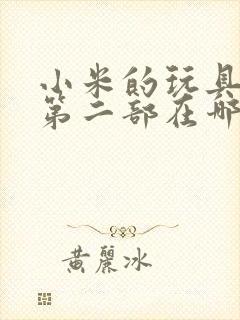 小米的玩具
第二部在哪
黄丽冰